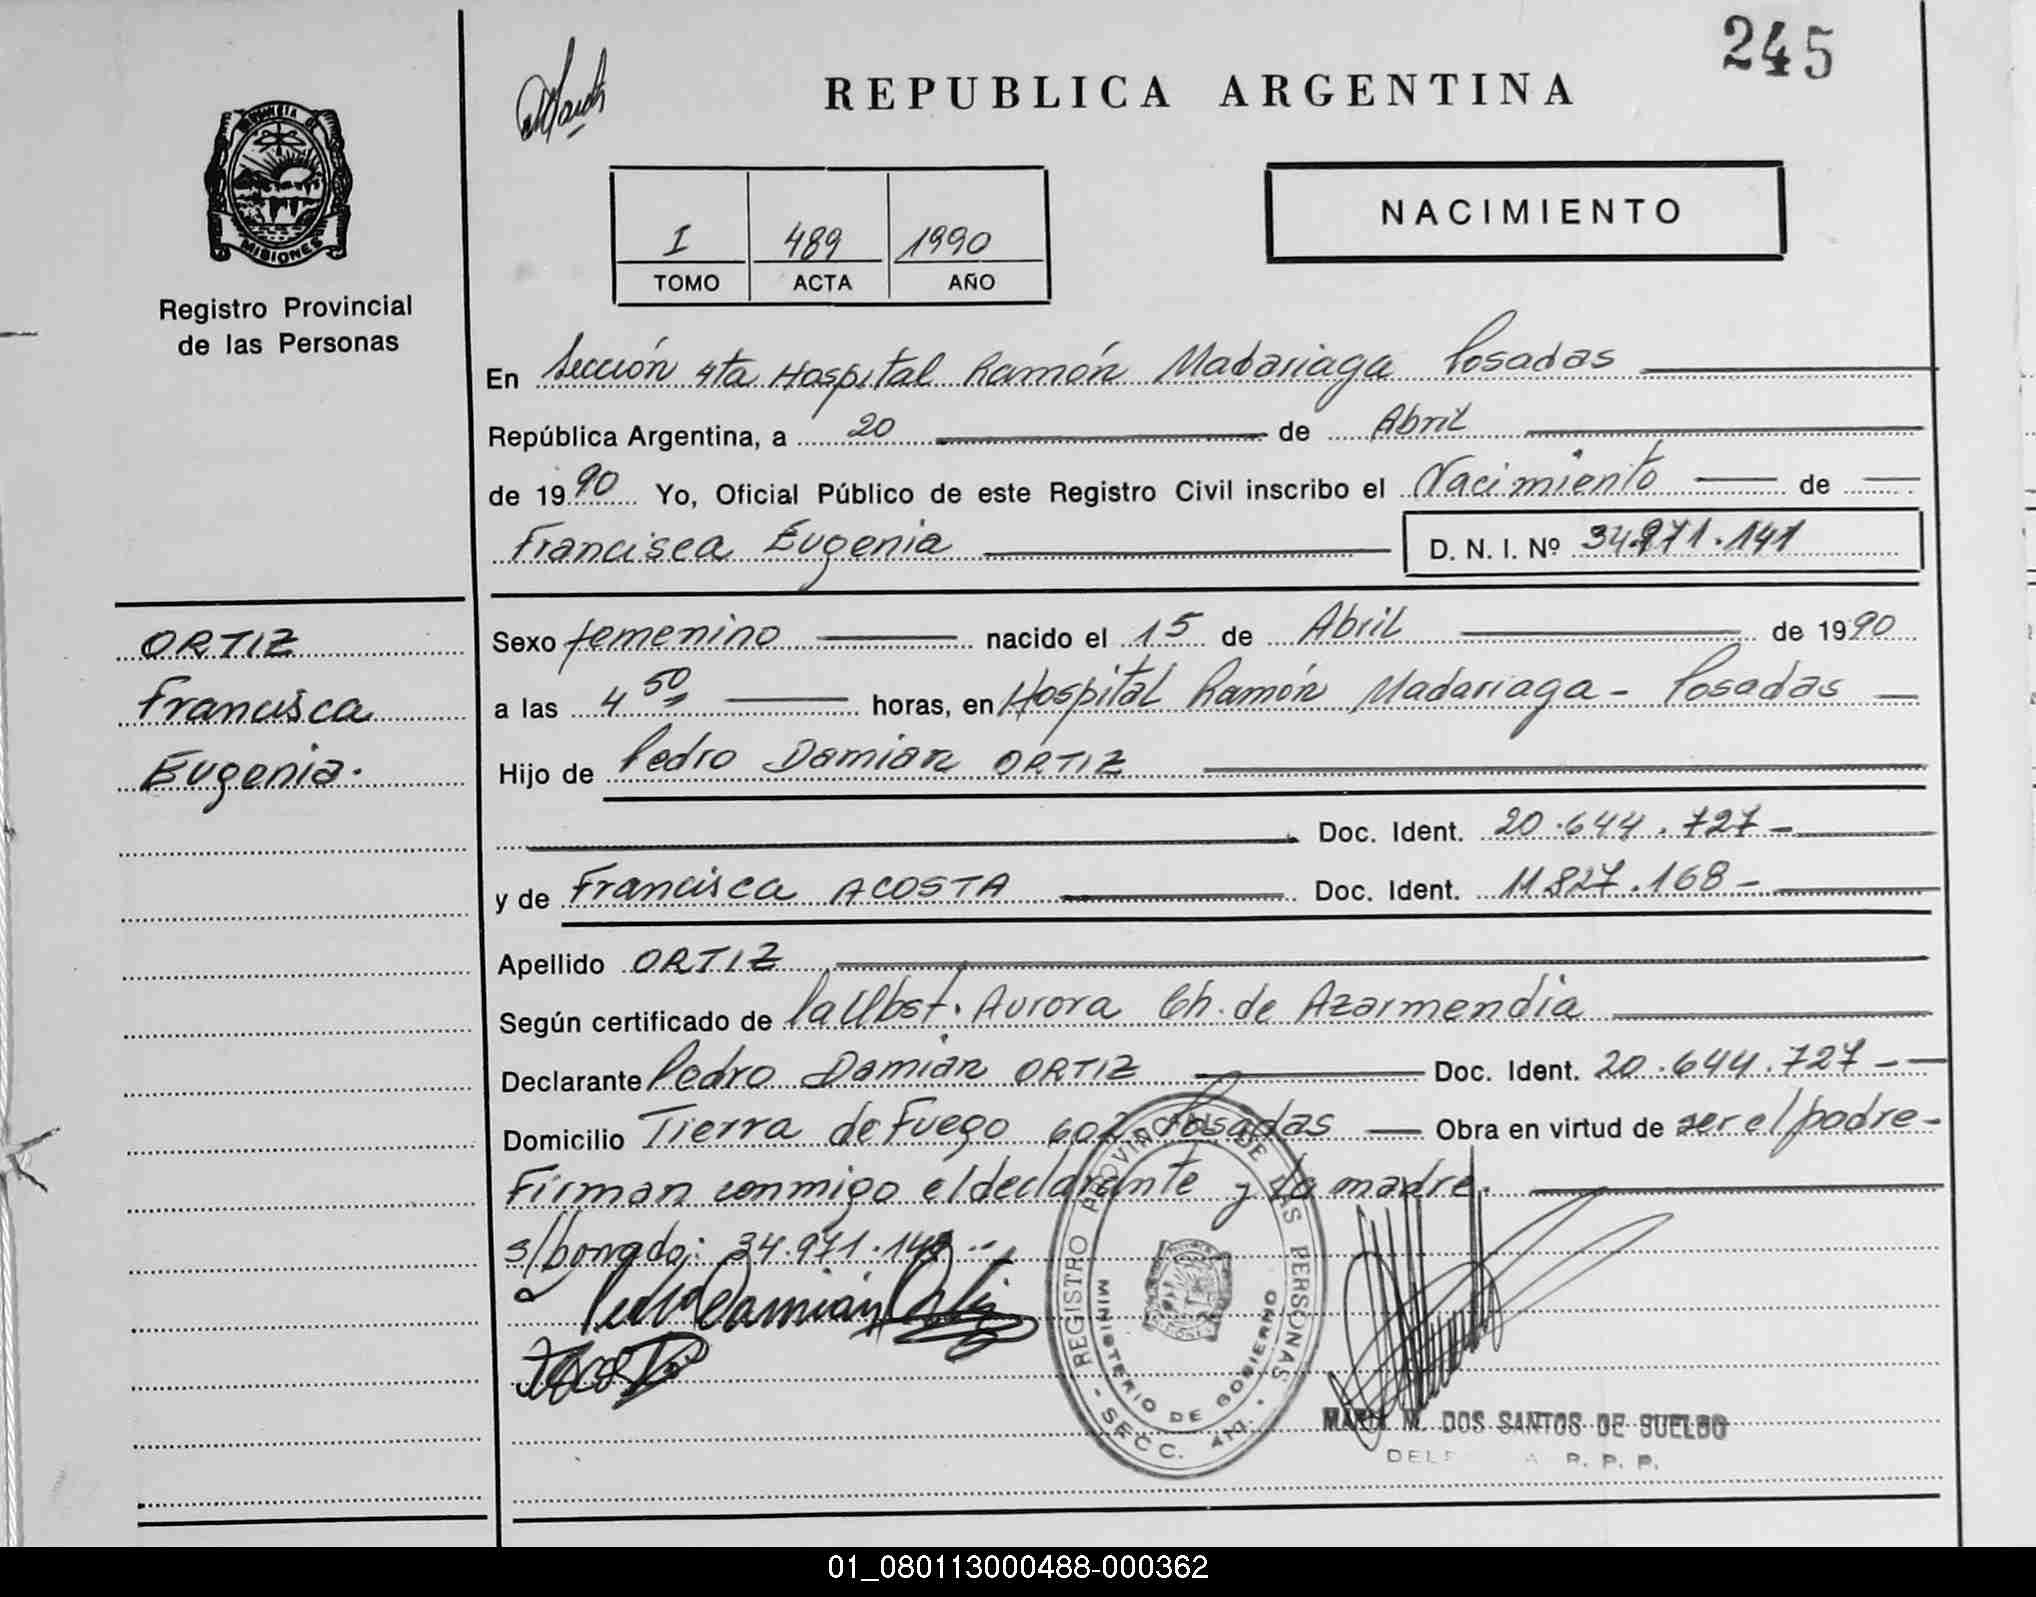 245
REPUBLICA ARGENTINA
PROVINCIA DE
MISIONES
Registro Provincial
de las Personas
NACIMIENTO
I 489 1990
TOMO ACTA AÑO
En Sección 4ta Hospital Ramón Madariaga Posadas
República Argentina, a 20 de Abril
de 1990 Yo, Oficial Público de este Registro Civil inscribo el Nacimiento de
Francisca Eugenia D. N. I. Nº 34.971.141
ORTIZ
Francisca
Eugenia.
Sexo femenino nacido el 15 de Abril de 1990
a las 4 50 horas, en Hospital Ramón Madariaga - Posadas
Hijo de Pedro Damian ORTIZ
Doc. Ident. 20.644.727-
y de Francisca ACOSTA Doc. Ident. 11.827.168-
Apellido ORTIZ
Según certificado de la Obst. Aurora Ch. de Azarmendia
Declarante Pedro Damián ORTIZ Doc. Ident. 20.644.727-
Domicilio Tierra de Fuego 602 Posadas Obra en virtud de ser el padre-
Firman conmigo el declarante y la madre.
s/borrado: 34.971.141 --
Pedro Damián Ortiz
REGISTRO PROVINCIAL DE LAS PERSONAS
MINISTERIO DE GOBIERNO
- SECC. 4ta. -
MARIA M. DOS SANTOS DE SUELDO
R. P. P.
01_080113000488-000362